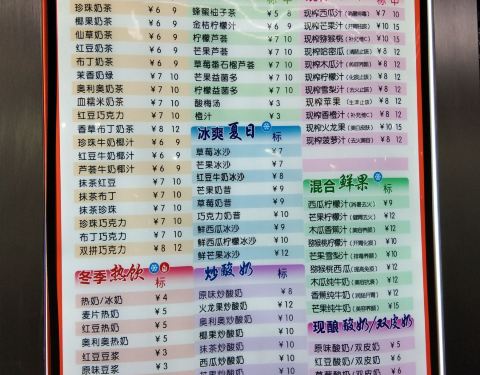 珍珠奶茶 ¥6 9
椰果奶茶 ¥6 9
仙草奶茶 ¥6 9
红豆奶茶 ¥6 9
布丁奶茶 ¥6 9
茉香奶绿 ¥7 10
奥利奥奶茶 ¥7 10
血糯米奶茶 ¥7 10
红豆巧克力 ¥7 10
香草布丁奶茶 ¥8 12
珍珠牛奶椰汁 ¥6 9
红豆牛奶椰汁 ¥6 9
芦荟牛奶椰汁 ¥6 9
抹茶红豆 ¥7 10
抹茶布丁 ¥7 10
抹茶珍珠 ¥7 10
布丁巧克力 ¥7 10
双拼巧克力 ¥8 12
冬季热饮
标
热奶/冰奶 ¥4
麦片热奶 ¥5
红豆热奶 ¥5
红豆豆浆 ¥3
原味豆浆
蜂蜜柚子茶 ¥5 8
金桔柠檬汁 ¥6 9
柠檬芦荟 ¥7 10
芒果芦荟 ¥7 10
草莓番石榴芦荟 ¥7 10
芒果益菌多 ¥7 10
柠檬益菌多 ¥7 10
酸梅汤 ¥3
橙汁 ¥3
冰爽夏日 标
草莓冰沙 ¥7
芒果冰沙 ¥7
红豆牛奶冰沙 ¥7
芒果奶昔 ¥9
草莓奶昔 ¥9
巧克力奶昔 ¥9
鲜西瓜冰沙 ¥9
鲜西瓜柠檬冰沙 ¥9
鲜芒果冰沙 ¥12
炒酸奶 标
原味炒酸奶 ¥8
火龙果炒酸奶 ¥12
奥利奥炒酸奶 ¥10
椰果炒酸奶 ¥10
抹茶炒酸奶 ¥10
西瓜炒酸奶 ¥10
现榨西瓜汁 ¥7 10
现榨木瓜汁 ¥10 15
现榨猕猴桃 ¥10 15
现榨哈密瓜 ¥8 12
现榨木瓜汁 ¥8 12
现榨柠檬汁 ¥8 12
现榨雪梨汁 ¥8 12
现榨苹果 ¥8 12
现榨香橙汁 ¥8 12
现榨火龙果 ¥10 15
现榨菠萝汁 ¥8 12
混合鲜果 标
西瓜柠檬汁 ¥9
芒果柠檬汁 ¥12
木瓜香蕉汁 ¥12
猕猴桃柠檬汁 ¥12
芒果雪梨汁 ¥12
猕猴桃西瓜 ¥12
木瓜纯牛奶 ¥12
香蕉纯牛奶 ¥12
芒果纯牛奶 ¥15
现酿酸奶/双皮奶
原味酸奶/双皮奶 ¥5
红豆酸奶/双皮奶 ¥6